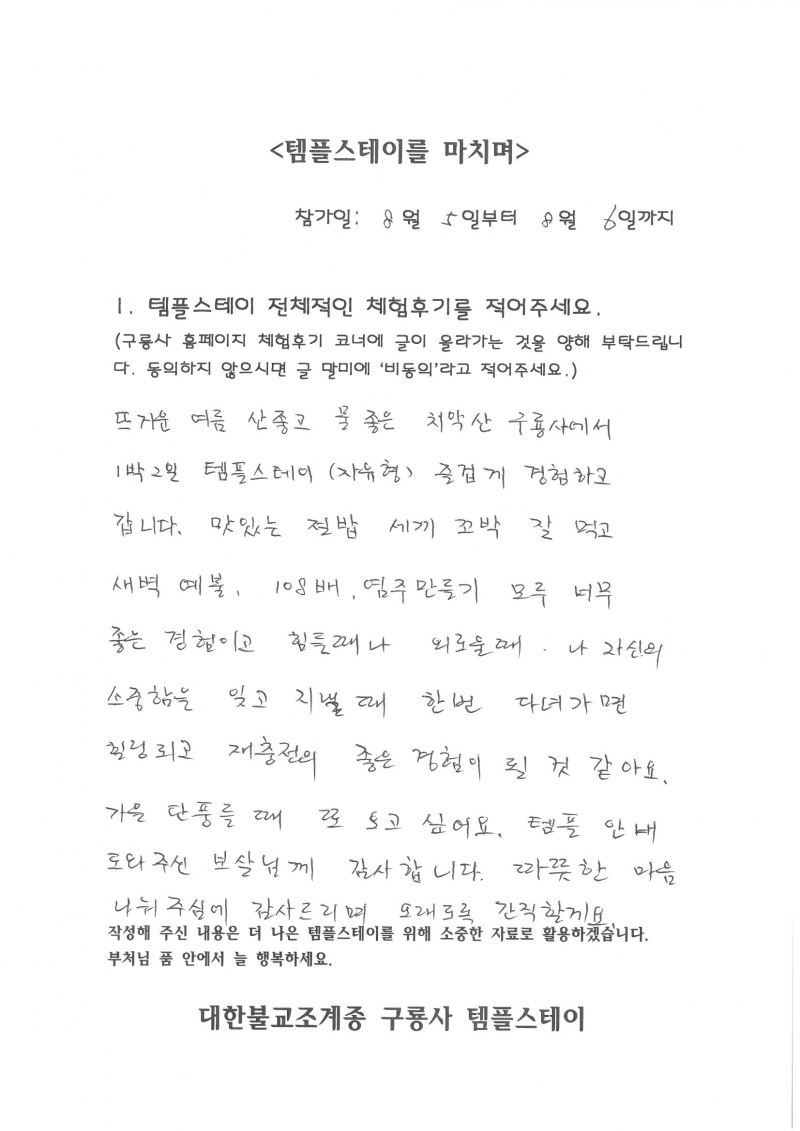 <템플스테이를 마치며>
참가일: 8월 5일부터 8월 6일까지
1. 템플스테이 전체적인 체험후기를 적어주세요.
(구룡사 홈페이지 체험후기 코너에 글이 올라가는 것을 양해 부탁드립니
다. 동의하지 않으시면 글 말미에 '비동의'라고 적어주세요.)
뜨거운 여름 산좋고 물 좋은 치악산 구룡사에서
1박2일 템플스테이 (자유형) 즐겁게 경험하고
갑니다. 맛있는 절밥 세끼 꼬박 잘 먹고
새벽 예불, 108배, 염주만들기 모두 너무
좋은 경험이고 힘들때나 외로울때. 나 자신의
소중함을 잊고 지낼때 한번 다녀가면
힐링되고 재충전의 좋은 경험이 될 것 같아요.
가을 단풍들때 또 오고 싶어요. 템플 안내
도와주신 보살님께 감사합니다. 따뜻한 마음
나눠주심에 감사드리며 오래도록 간직할게요.
작성해 주신 내용은 더 나은 템플스테이를 위해 소중한 자료로 활용하겠습니다.
부처님 품 안에서 늘 행복하세요.
대한불교조계종 구룡사 템플스테이